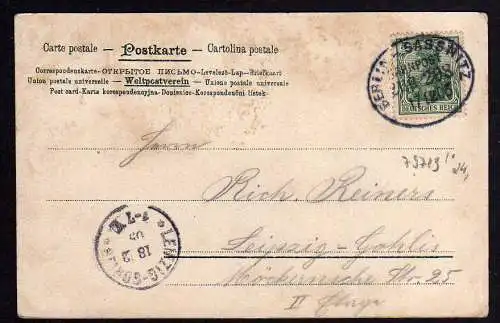 Carte postale — Postkarte — Cartolina postale
Correspondenzkarte — ОТКРЫТОЕ ПИСЬМО — Levelező-Lap — Briefkaart
Union postale universelle — Weltpostverein — Unione postale universale
Post card - Karta korespondencyjna - Dopisnice - Korespondenční lístek.
SASSNITZ
BERLIN
DEUTSCHES REICH
79729
24,
Herrn
Rich. Reiners
Leipzig-Gohlis
Möckernsche Str. 25
II Etage
LEIPZIG-GOHLIS
18 2
05